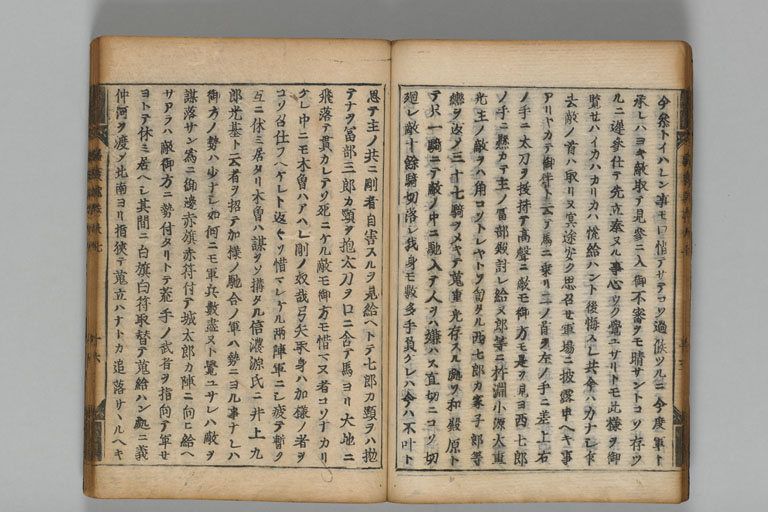 今參トイハレン事モ口惜アサテコソ過候ツルニ今度軍ト
承レハヨキ敵取テ見參ニ入御不審ヲモ晴サントコソ存ツ
ルニ遲參仕テ先立奉ヌル事心ツク覺ユサリトモ此樣ヲ御
覽セハイカハカリカハ悦給ハント後悔スレ共今ハカナシ乍
去敵ノ首ハ取リヌ冥途安ク思召セ軍場ニ披露申ヘキ事
アリヤカテ御伴ト云テ馬ニ乗リ二ノ首ヲ左ノ手ニ差上右
ノ手ニ太刀ヲ抜持テ高聲ニ敵モ御方モ是ヲ見ヨ西七郎
ノ手ニ懸カテ主ノ冨部殿討レ給ヌ郎等ニ杵淵小源太重
光主ノ敵ヲハ角コソトレヤトソ匐タル西七郎カ家子郎等
轡ヲ返メ三十七騎ヲメキテ蒐重光存スル處ソ和殿原ト
テ只一騎ニテ敵ノ中ニ馳入テ人ヲハ嫌ハス直切ニコソ切
廻レ敵十餘騎切落シ我身モ數多手負クレハ今ハ不叶ト
思テ主ノ共ニ剛者自害スルヲ見給ヘトテ七郎カ頸ヲハ抛
テナヲ冨部三郎カ頸ヲ抱太刀ヲ口ニ含テ馬ヨリ大地ニ
飛落テ貫カレテソ死ニケル敵モ御方モ惜マヌ者コソナカリ
ケレ中ニモ木曽ハアハレ剛ノ奴哉弓矢取身ハ加樣ノ者ヲ
コソ召仕フヘケレト返々ソ惜マレケル両陣軍ニシ疲テ暫ク
互ニ休ミ居タリ木曽ハ謀ヲソ構タル信濃源氏ニ井上九
郎光基ト云者ヲ招テ加樣ノ馳合ノ軍ハ勢ニヨル事ナレハ
御方ノ勢ハ少ナシ如何ニモ軍兵數盡ヌト覺ユサレハ敵ヲ
謀落サン為ニ御邊赤旗赤符付テ城太郎カ陣ニ向ヒ給ヘ
サアラハ敵御方ニ勢付タリトテ荒手ノ武者ヲ指向テ軍セ
ヨトテ休ミ居ヘシ其間ニ白旗白符取替テ蒐給ハン処ニ義
仲河ヲ渡メ北南ヨリ指挾テ蒐立ハナトカ追落サヽルヘキ